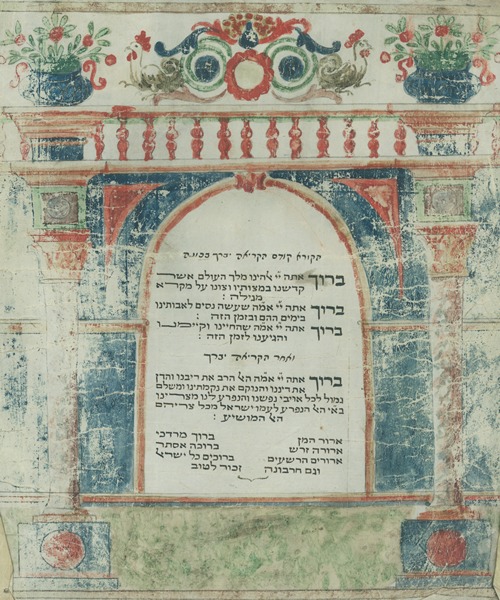 הקורא קודם הקריאה יברך בכונה
ברוך אתה יי אהינו מלך העולם אשר
קדשנו במצותיו וצונו על מקרא
מגילה :
ברוך אתה יי אמה שעשה נסים לאבותינו
בימים ההם ובזמן הזה :
ברוך אתה יי אמה שהחיינו וקיימנו
והגיענו לזמן הזה :
ואחר הקריאה יברך
ברוך אתה יי אמה הא הרב את ריבנו והדן
את דיננו והנוקם את נקמתינו ומשלם
גמול לכל אויבי נפשנו והנפרע לנו מצרינו
באי הא הנפרע לעמו ישראל מכל צריהם
הא המושיע :
ארור המן ברוך מרדכי
ארורה זרש ברוכה אסתר
ארורים הרשעים ברוכים כל ישראל
וגם חרבונה זכור לטוב